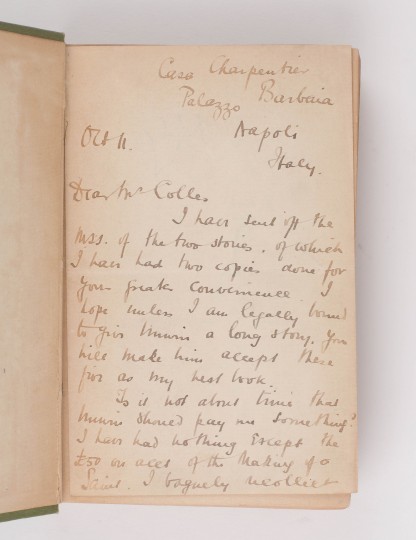 Casa Charpentier
Palazzo Barbaia
Napoli
Italy.
Oct 11.
Dear Mr Colles
I have sent off the
MSS. of the two stories, of which
I have had two copies done for
your greater convenience. I
hope unless I am legally bound
to give Unwin a long story, you
will make him accept these
five as my next book.
Is it not about time that
Unwin should pay me something?
I have had nothing except the
£50 on acct of the Making of a
Saint. I vaguely recollect